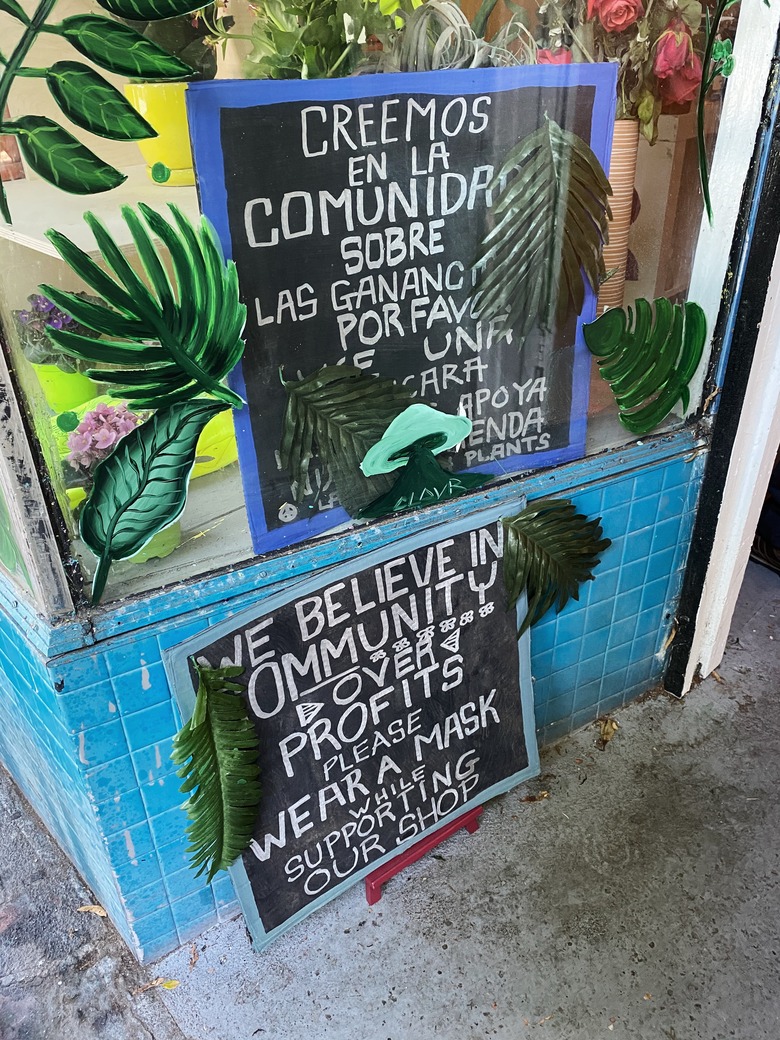 CREEMOS
EN LA
COMUNIDA
SOBRE
LAS GANANC
POR FAVO
UNA
CARA
APOYA
ENDA
PLANTS
WE BELIEVE IN
OMMUNITY
OVER
PROFITS
PLEASE
WEAR A MASK
WHILE
SUPPORTING
OUR SHOP